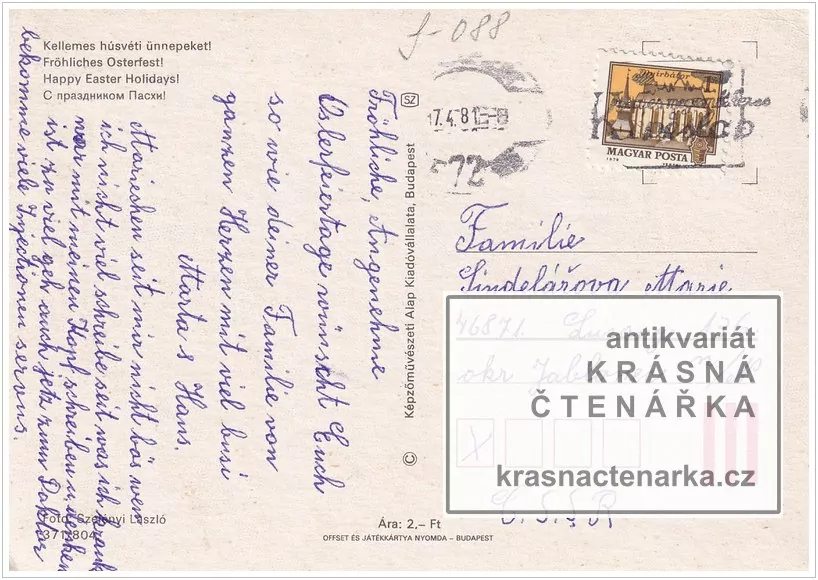 Kellemes húsvéti ünnepeket!
Fröhliches Osterfest!
Happy Easter Holidays!
С праздником Пасхи!
f-088
Fröhliche, Angenehme
Osterfeiertage wünscht Euch
so wie deiner Familie von
ganzen Herzen mit viel busi
Marta & Hans.
Mariechen seit mir nicht bös wen
ich nicht viel schreibe seit was ich krank
war mit meinen Kopf schreiben u. denken
ist zu viel geh auch jetz zum Doktor
bekomme viele Injectionen servus.
Fotó: Szelényi László
371 804
SZ
© Képzőművészeti Alap Kiadóvállalata, Budapest
Ára: 2,– Ft
OFFSET ÉS JÁTÉKKÁRTYA NYOMDA – BUDAPEST
17.4.81.-8
72
Nyírbátor
MAGYAR POSTA
Familie
Sindelářova Marie
46871
okr Jablonec
antikvariát
KRÁSNÁ
ČTENÁŘKA
krasnactenarka.cz
Č.S.S.R